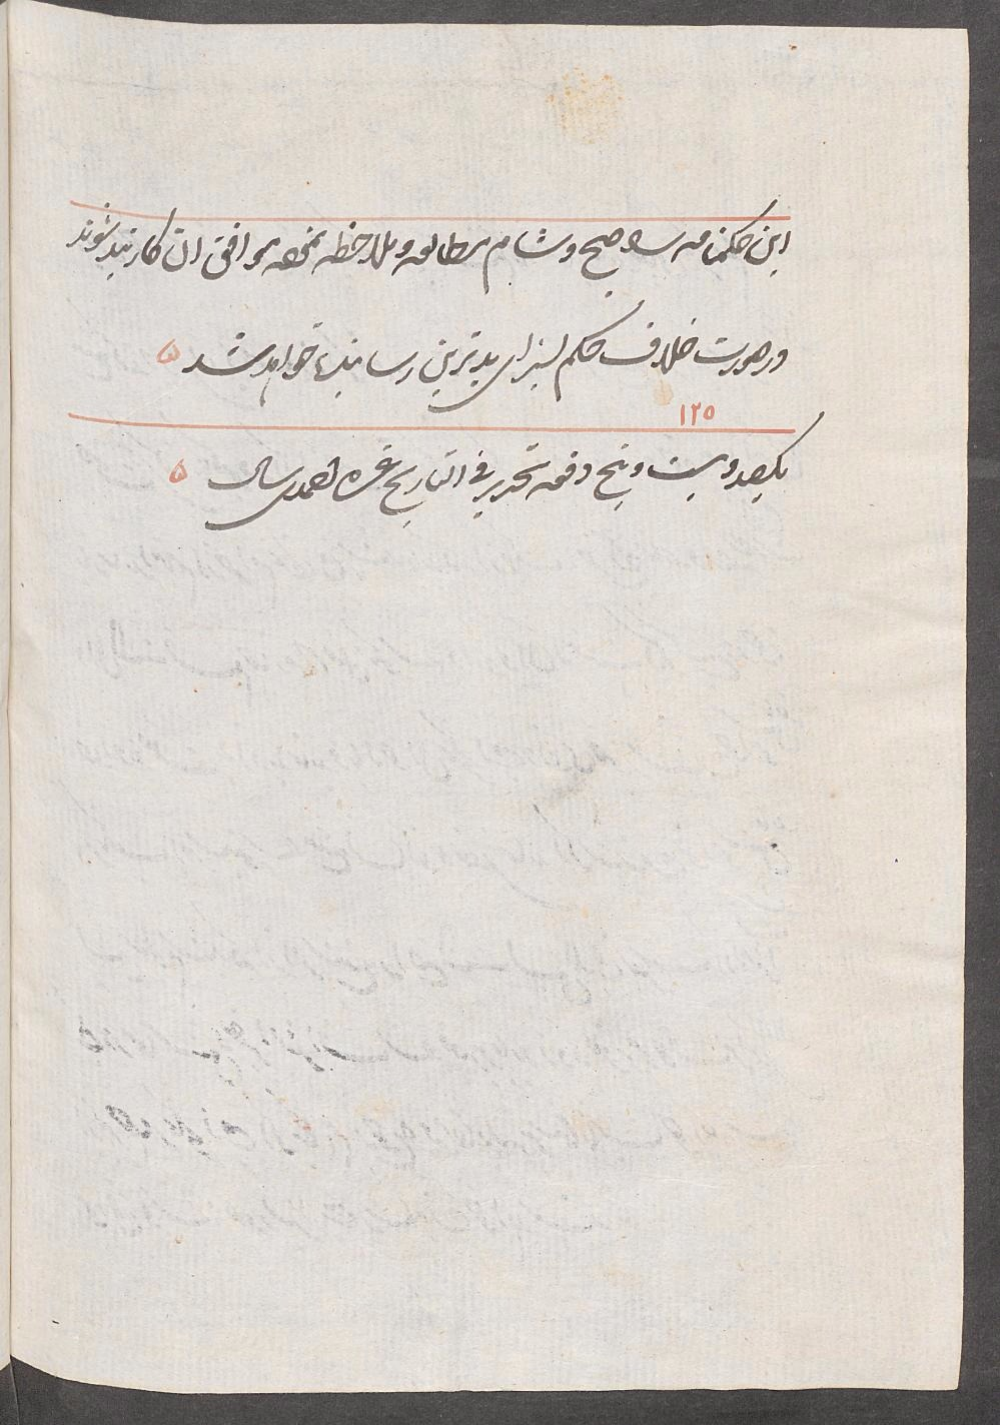 این حکمنامه را صبح و شام مطالعه و ملاحظه نموده موافق آن کاربند شوند
در صورت خلاف حکم بسزای بدترین رسانیده خواهد شد ۵
۱۲۵
یکصد و بیست و پنج دفعه تحریر فی التاریخ غره احمدی سال ۵